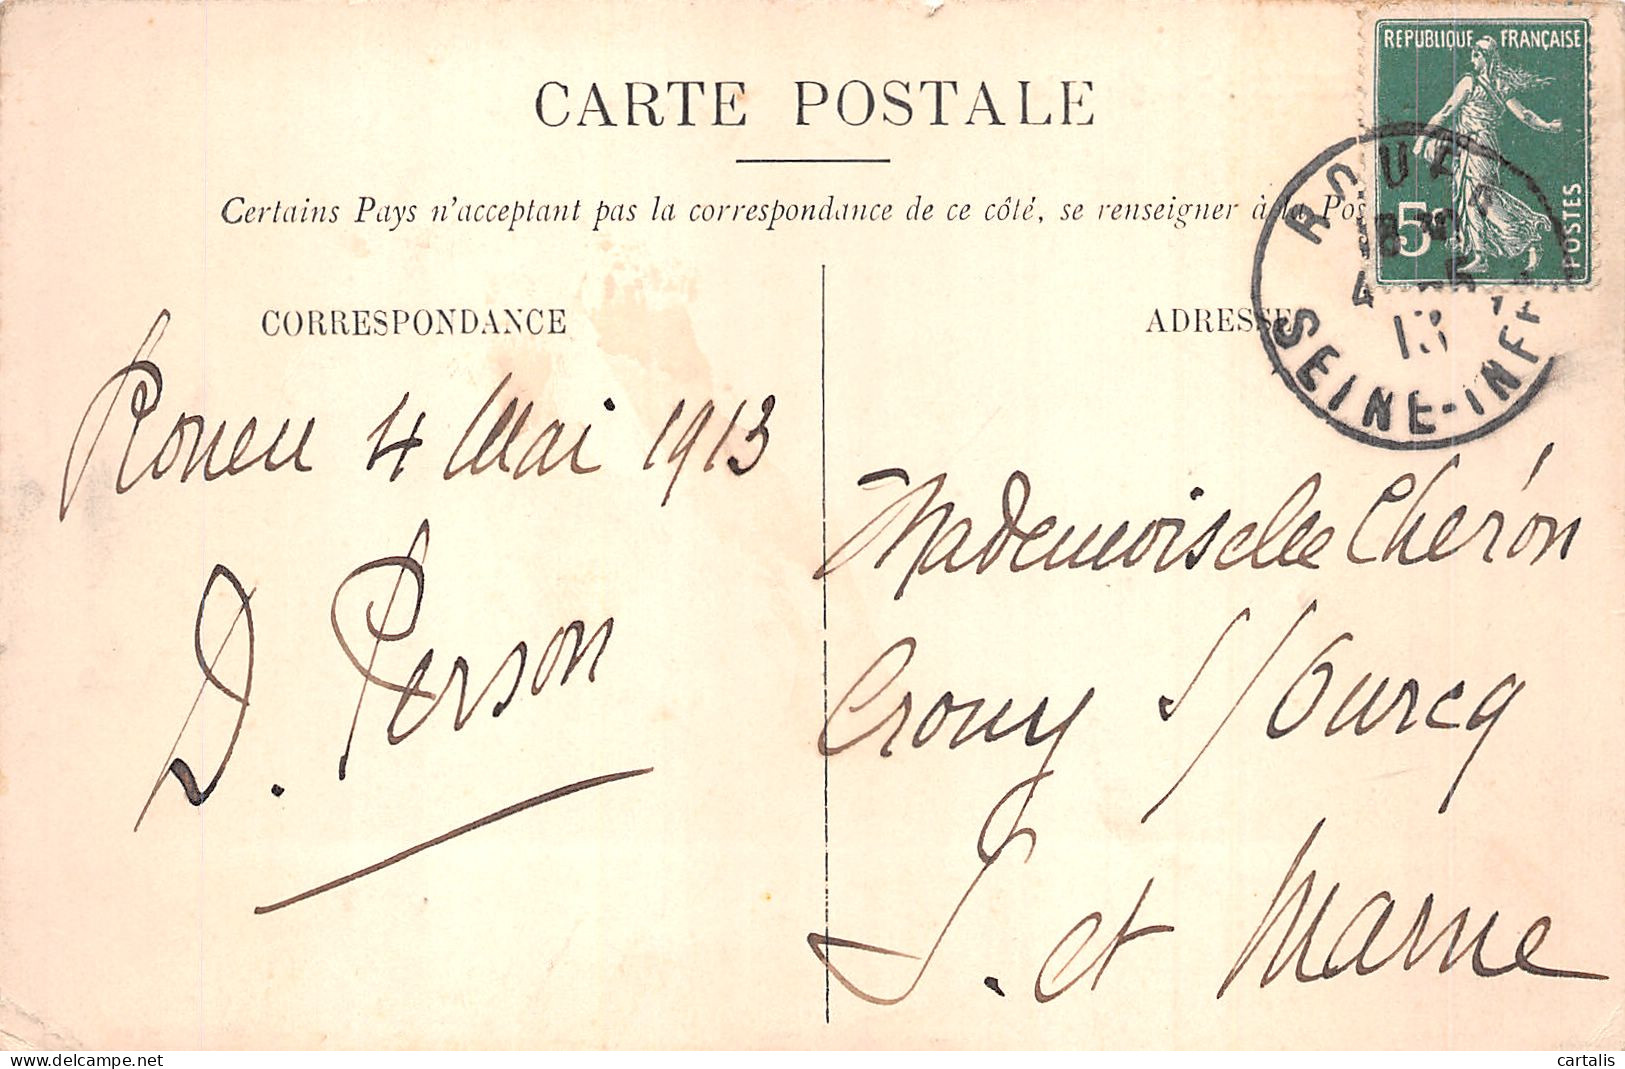 CARTE POSTALE
Certains Pays n'acceptant pas la correspondance de ce côté, se renseigner à la Pos
RÉPUBLIQUE FRANÇAISE
5
POSTES
ROUEN
4 - 5
13
SEINE-INFRE
CORRESPONDANCE
Rouen 4 Mai 1913
D. Person
ADRESSE
Mademoiselle Chéron
Crouy s/ Ourcq
S. et Marne
delcampe.net
cartalis